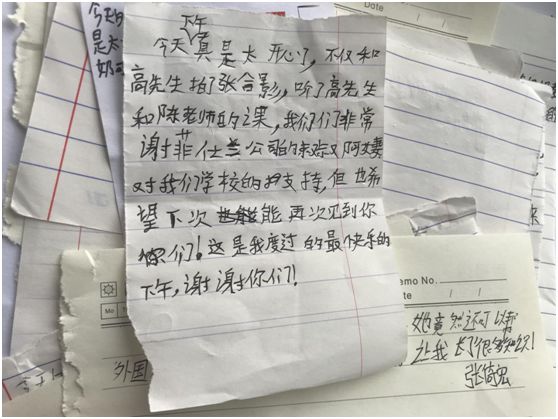 Date
今天
是太
下午
今天真是太开心了，不仅和
高先生拍了张合影，听了高先生
和陈老师的课，我们们非常
谢菲仕兰公司的
对我们学校的支持，但也希
望下次能再次见到你
你们！这是我度过的最快乐的
下午，谢谢你们！
emo No.
Date / /
Mo
她竟然还可以帮
让我长了很多知识！
外国